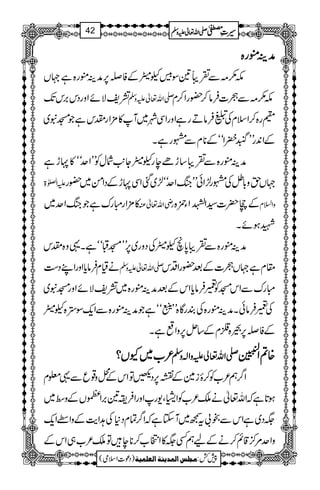 سیرتِ مصطفیٰ صلی اللہ تعالیٰ علیہ وسلم 42
مدینہ منورہ
مکہ مکرمہ سے تقریباً تین سو بیس کیلو میٹر کے فاصلہ پر مدینہ منورہ ہے جہاں
مکہ مکرمہ سے ہجرت فرما کر حضور اکرم صلی اللہ تعالیٰ علیہ وسلم تشریف لائے اور دس برس تک
مقیم رہ کر اسلام کی تبلیغ فرماتے رہے اور اسی شہر میں آپ کا مزار مقدس ہے جو مسجد نبوی
کے اندر ’’گنبد خضرا‘‘ کے نام سے مشہور ہے۔
مدینہ منورہ سے تقریباً ساڑھے چار کیلو میٹر جانب شمال کو ’’احد‘‘ کا پہاڑ ہے
جہاں حق و باطل کی مشہور لڑائی ’’جنگ احد‘‘ لڑی گئی اسی پہاڑ کے دامن میں حضور علیہ الصلوۃ
والسلام کے چچا حضرت سید الشہداء حمزہ رضی اللہ تعالیٰ عنہ کا مزار مبارک ہے جو جنگ احد میں
شہید ہوئے۔
مدینہ منورہ سے تقریباً پانچ کیلو میٹر کی دوری پر ’’مسجد قبا‘‘ ہے۔ یہی وہ مقدس
مقام ہے جہاں ہجرت کے بعد حضور اقدس صلی اللہ تعالیٰ علیہ وسلم نے قیام فرمایا اور اپنے دست
مبارک سے اس مسجد کو تعمیر فرمایا اس کے بعد مدینہ منورہ میں تشریف لائے اور مسجد نبوی
کی تعمیر فرمائی۔ مدینہ منورہ کی بندرگاہ ’’ینبع‘‘ ہے جو مدینہ منورہ سے ایک سو سترہ کیلو میٹر
کے فاصلہ پر بحیرۂ قلزم کے ساحل پر واقع ہے۔
خاتم النبیین صلی اللہ تعالیٰ علیہ والہ وسلم عرب میں کیوں؟
اگر ہم عرب کو کرۂ زمین کے نقشہ پر دیکھیں تو اس کے محل وقوع سے یہی معلوم
ہوتا ہے کہ اللہ تعالیٰ نے ملک عرب کو ایشیا، یورپ اور افریقہ تین براعظموں کے وسط میں
جگہ دی ہے اس سے بخوبی یہ سمجھ میں آ سکتا ہے کہ اگر تمام دنیا کی ہدایت کے واسطے ایک
واحد مرکز قائم کرنے کے لیے ہم کسی جگہ کا انتخاب کرنا چاہیں تو ملک عرب ہی اس کے
پیش کش: مجلس المدینۃ العلمیۃ (دعوت اسلامی)